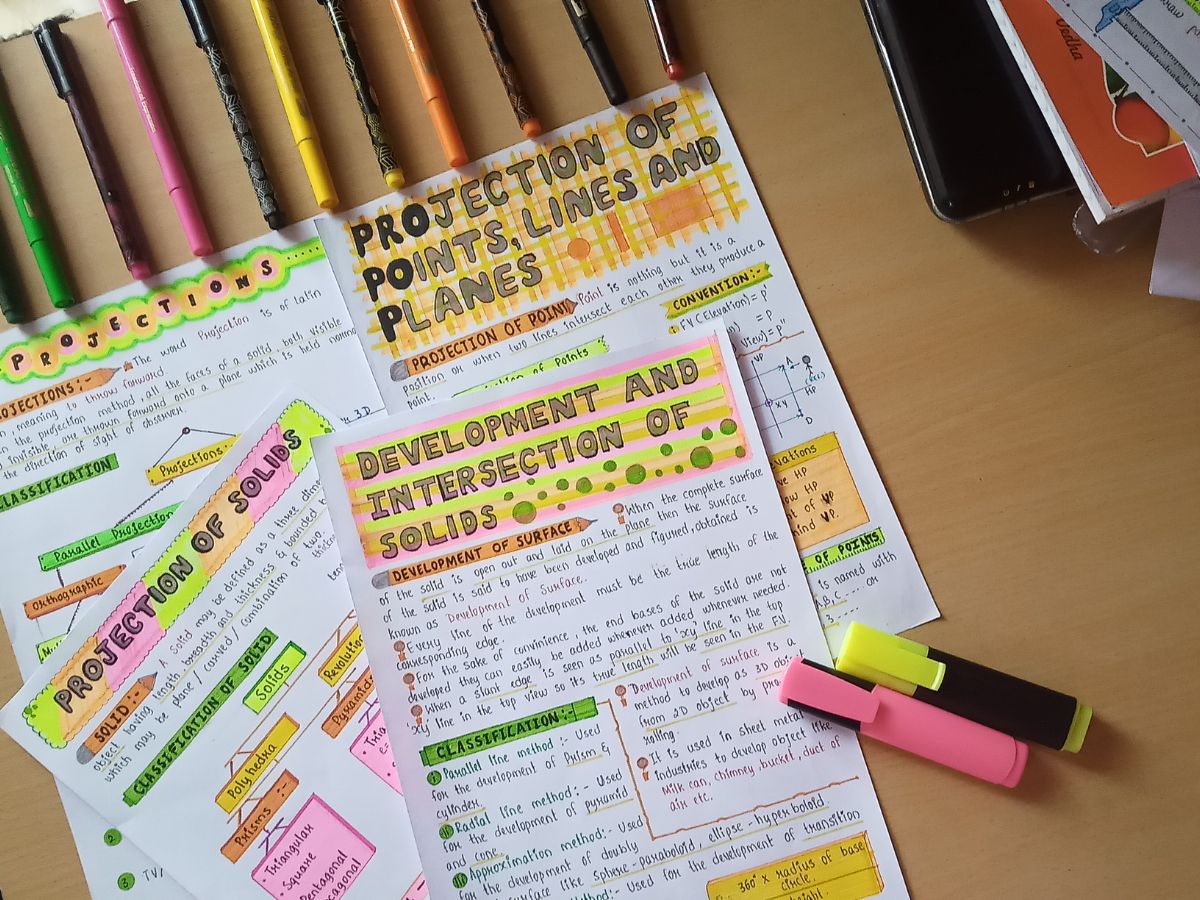 PROJECTIONS
PROJECTIONS:-
The word Projection is of latin
meaning to throw forward.
the projection method, all the faces of a solid both visible
invisible, are thrown forward onto a plane which is held
the direction of sight of observer.
CLASSIFICATION
Projections:
3D
Parallel Projection
Orthographic
2
3 TV
PROJECTION OF
POINTS, LINES AND
PLANES
PROJECTION OF POINT
Point is nothing but it is a
position or when two lines intersect each other they produce a
point.
of Points
CONVENTION:-
FV (Elevation) = p'
= p
view) = p"
VP
A
XY
HP
D
HP
HP
of VP
VP.
OF POINTS
is named with
A,B,C --- or
PROJECTION OF SOLIDS
SOLID:-
A Solid may be defined as a three
object having length, breadth and thickness & bounded
which may be plane / curved / combination of two.
CLASSIFICATION OF SOLID
Solids
Polyhedra
Prisms :-
Triangular
Square
Pentagonal
Pyramids
DEVELOPMENT AND
INTERSECTION OF
SOLIDS
DEVELOPMENT OF SURFACE
When the complete surface
of the solid is open out and laid on the plane then the surface
of the solid is said to have been developed and figure, obtained is
known as Development of Surface.
Every line of the development must be the true length of the
corresponding edge.
For the sake of convinience, the end bases of the solid are not
developed they can easily be added whenever added whenever needed
When a slunt edge is seen as parallel to 'xy' line in the top
xy line in the top view so its true length will be seen in the F.V.
CLASSIFICATION:-
i Parallel line method :- Used
for the development of Prism &
cylinder.
ii Radial line method :- Used
for the development of pyramid
and cone.
iii Approximation method:- Used
for the development of doubly
surface like Sphere-paraboloid, ellipse-hyperboloid.
method:- Used for the development of transition
Development of surface is a
method to develop as 3D
from 2D object by
rolling.
It is used in sheet metal
industries to develop object like
Milk can, chimney, bucket, duct of
air etc.
360° X radius of base
circle.
Vedha